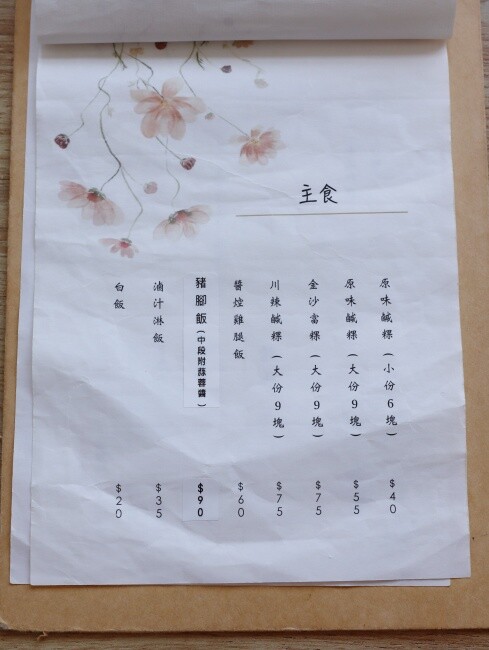 主食
原味鹹粿(小份6塊) $40
原味鹹粿(大份9塊) $55
金沙富粿(大份9塊) $75
川辣鹹粿(大份9塊) $75
醬焢雞腿飯 $60
豬腳飯(中段附蒜蓉醬) $90
滷汁淋飯 $35
白飯 $20